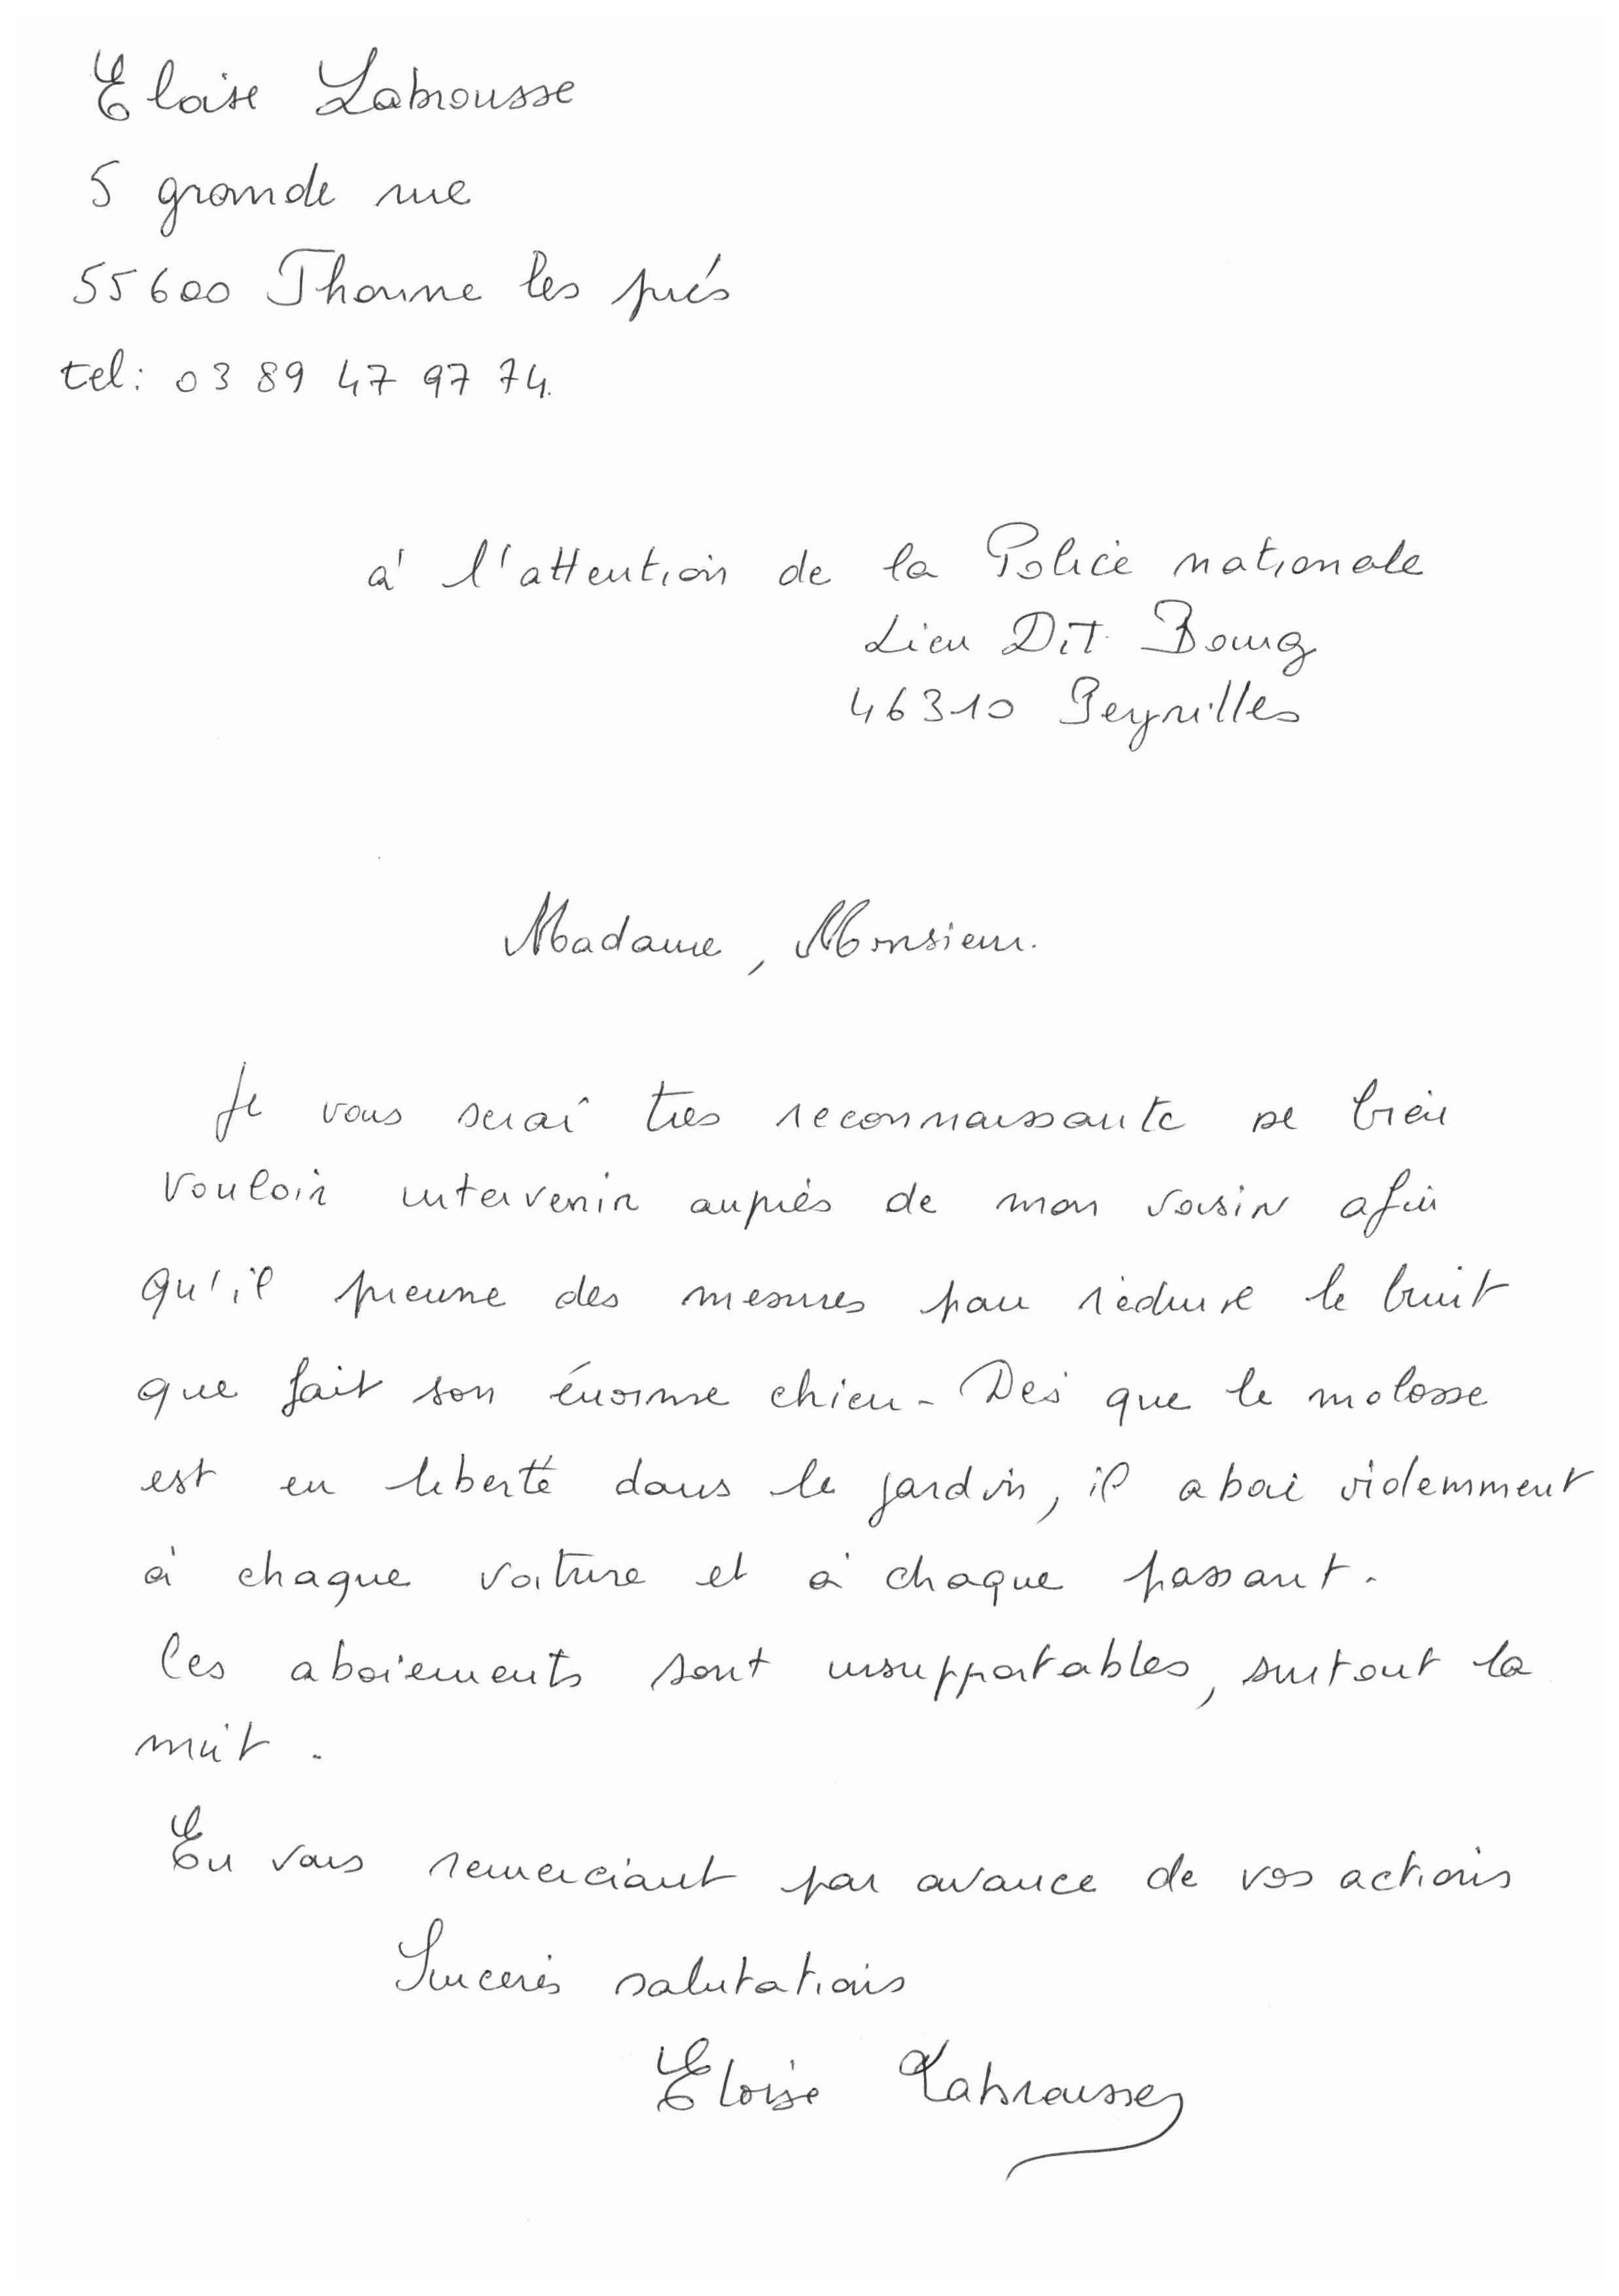 Eloise Labrousse
5 grande rue
55600 Thonne les prés
tel: 03 89 47 97 74.
à l'attention de la Police nationale
Lieu Dit Bourg
46310 Peyrilles
Madame, Monsieur.
Je vous serai tres reconnaissante de bien
vouloir intervenir auprès de mon voisin afin
qu'il prenne des mesures pour réduire le bruit
que fait son énorme chien. Dès que le molosse
est en liberté dans le jardin, il aboi violemment
à chaque voiture et à chaque passant.
les aboiements sont insupportables, surtout la
nuit.
En vous remerciant par avance de vos actions
Sincères salutations
Eloise Labrousse